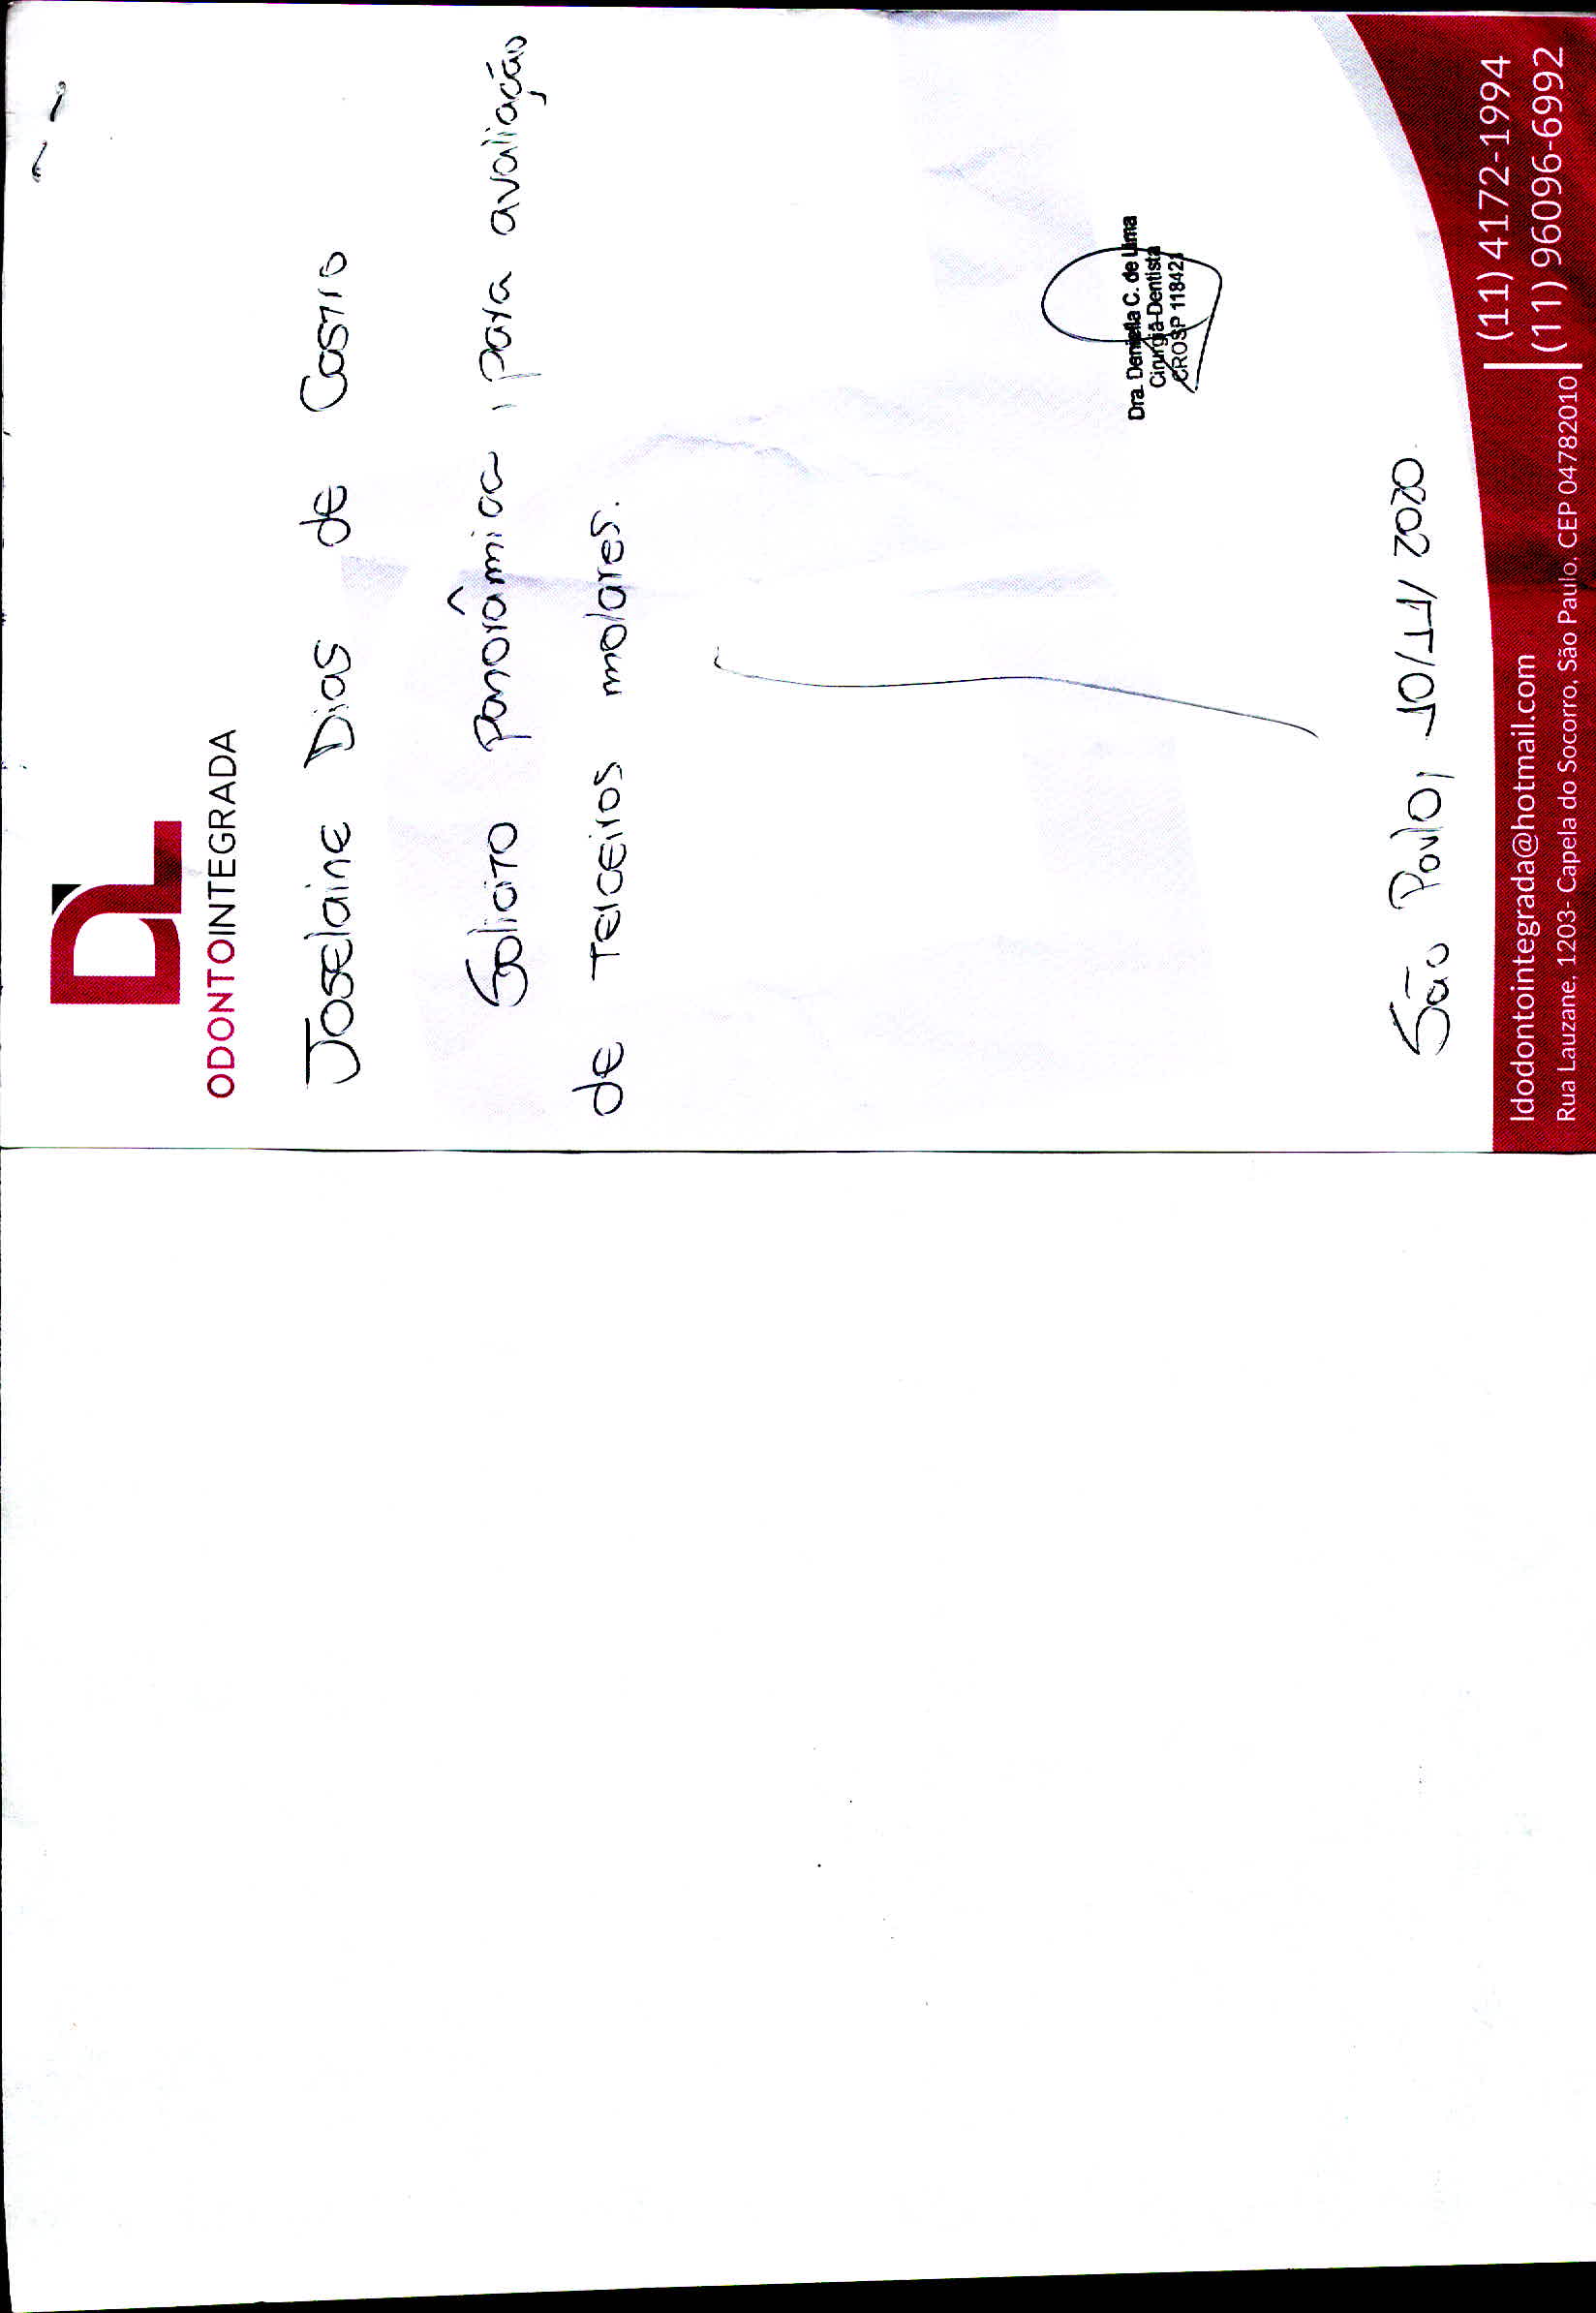 DL
ODONTOINTEGRADA
Joselaine Dias de Castro
Solicito panorâmica, para avaliação
de terceiros molares.
Dra. Daniella C. de Lima
Cirurgiã-Dentista
CROSP 118423
São Paulo, 10/11/2020
(11) 4172-1994
ldodontointegrada@hotmail.com
(11) 96096-6992
Rua Lauzane, 1203- Capela do Socorro, São Paulo, CEP 04782010